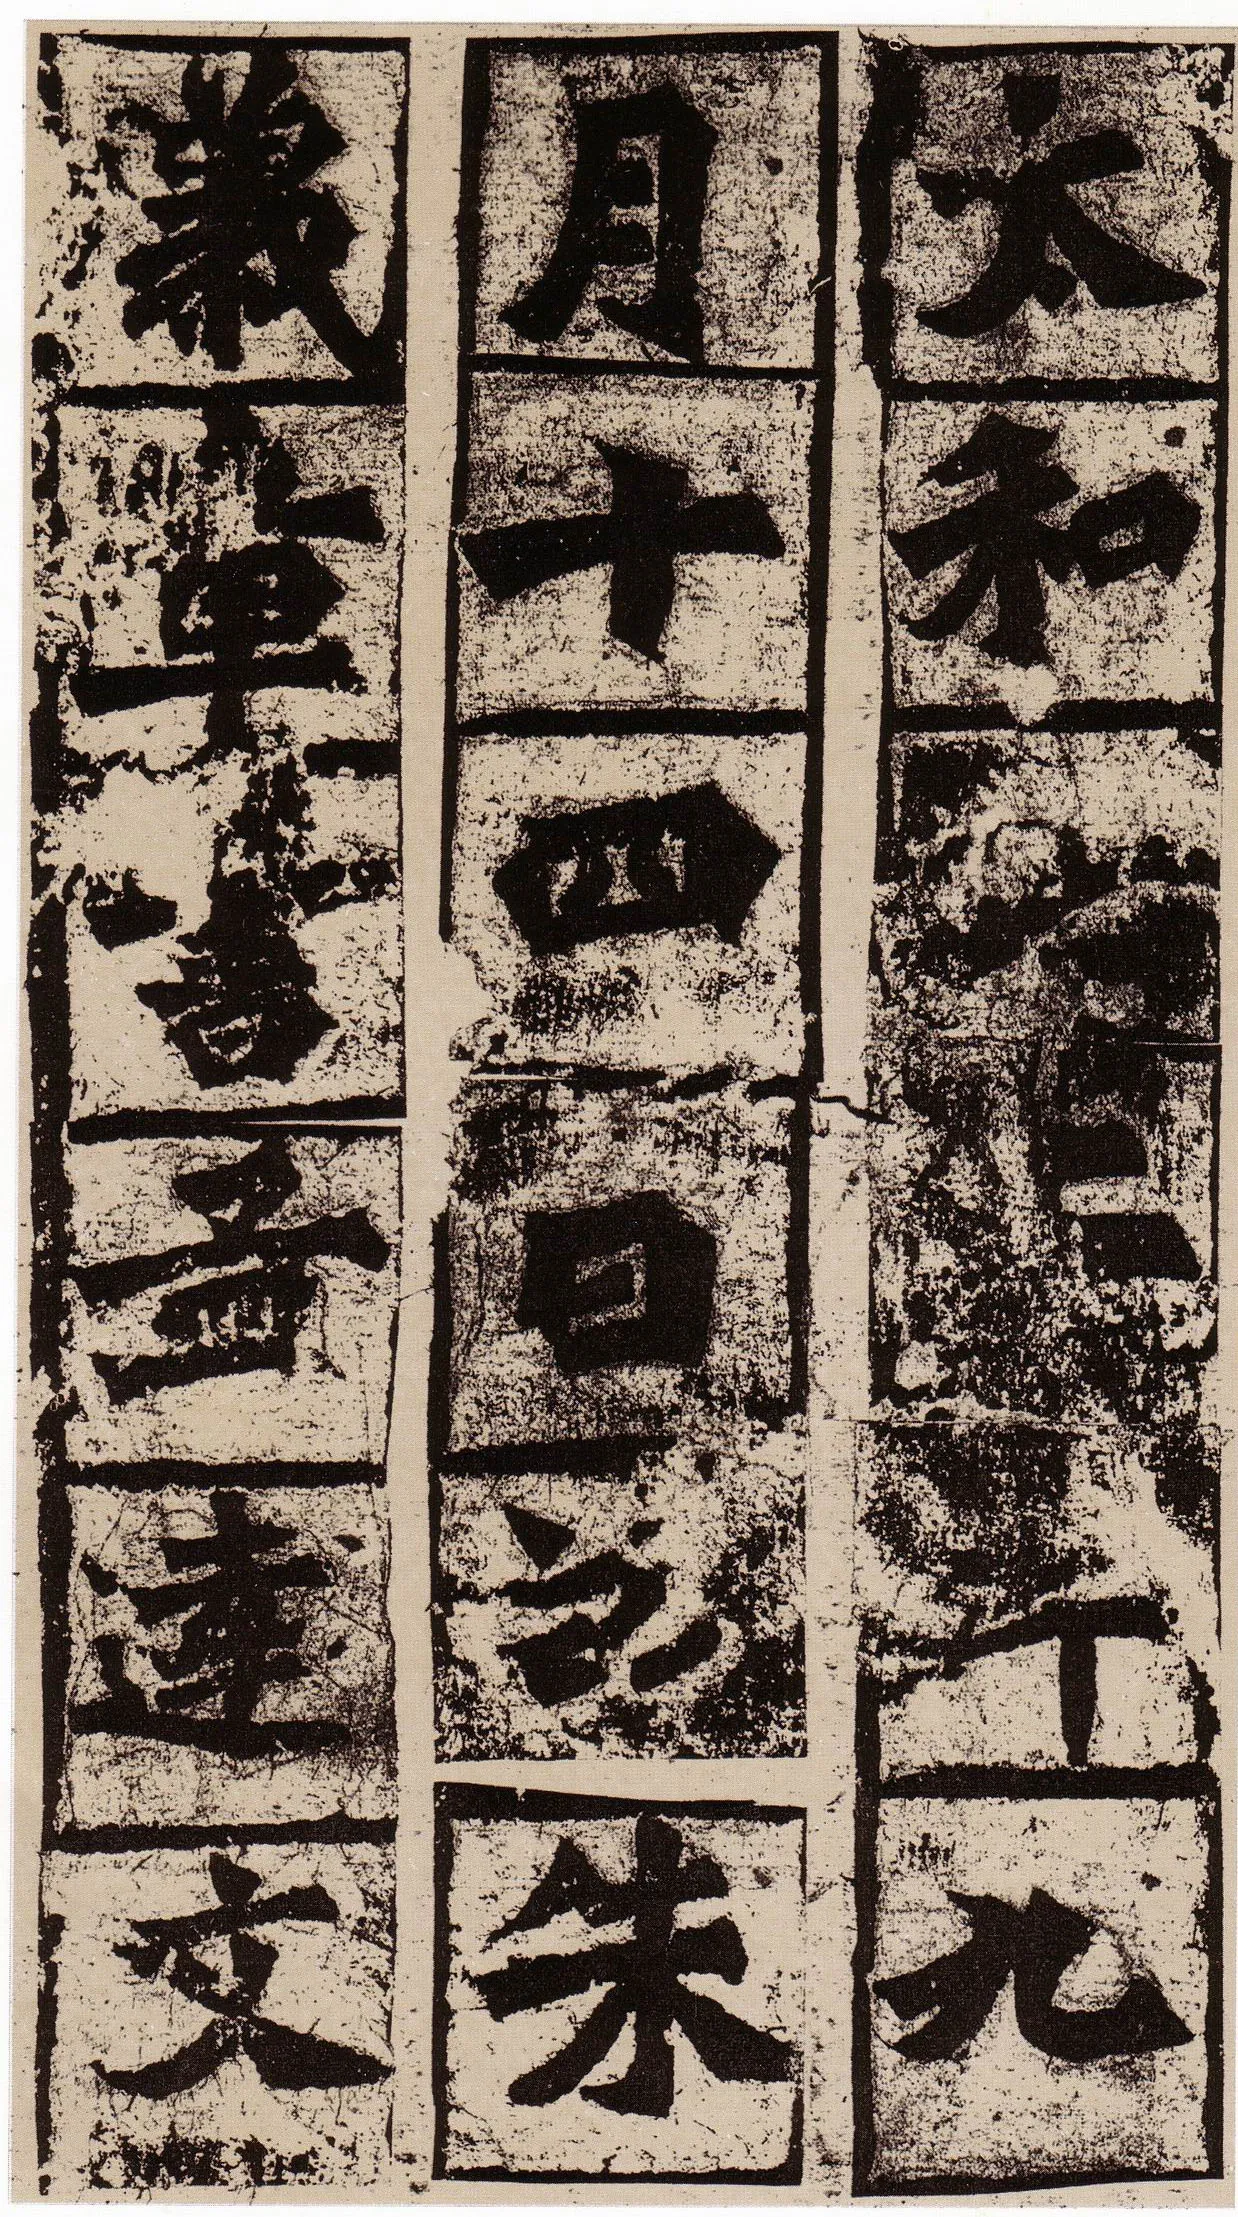 太和二年九
月十四日訖朱
義章書孟達文